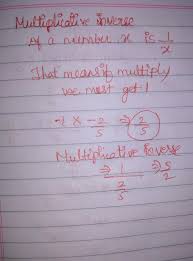 Multiplicative inverse
of a number x is 1/x
That means if multiply
we must get 1
-1 × -2/5 ⇒ 2/5
Multiplicative inverse
⇒ 1/(2/5) ⇒ 5/2